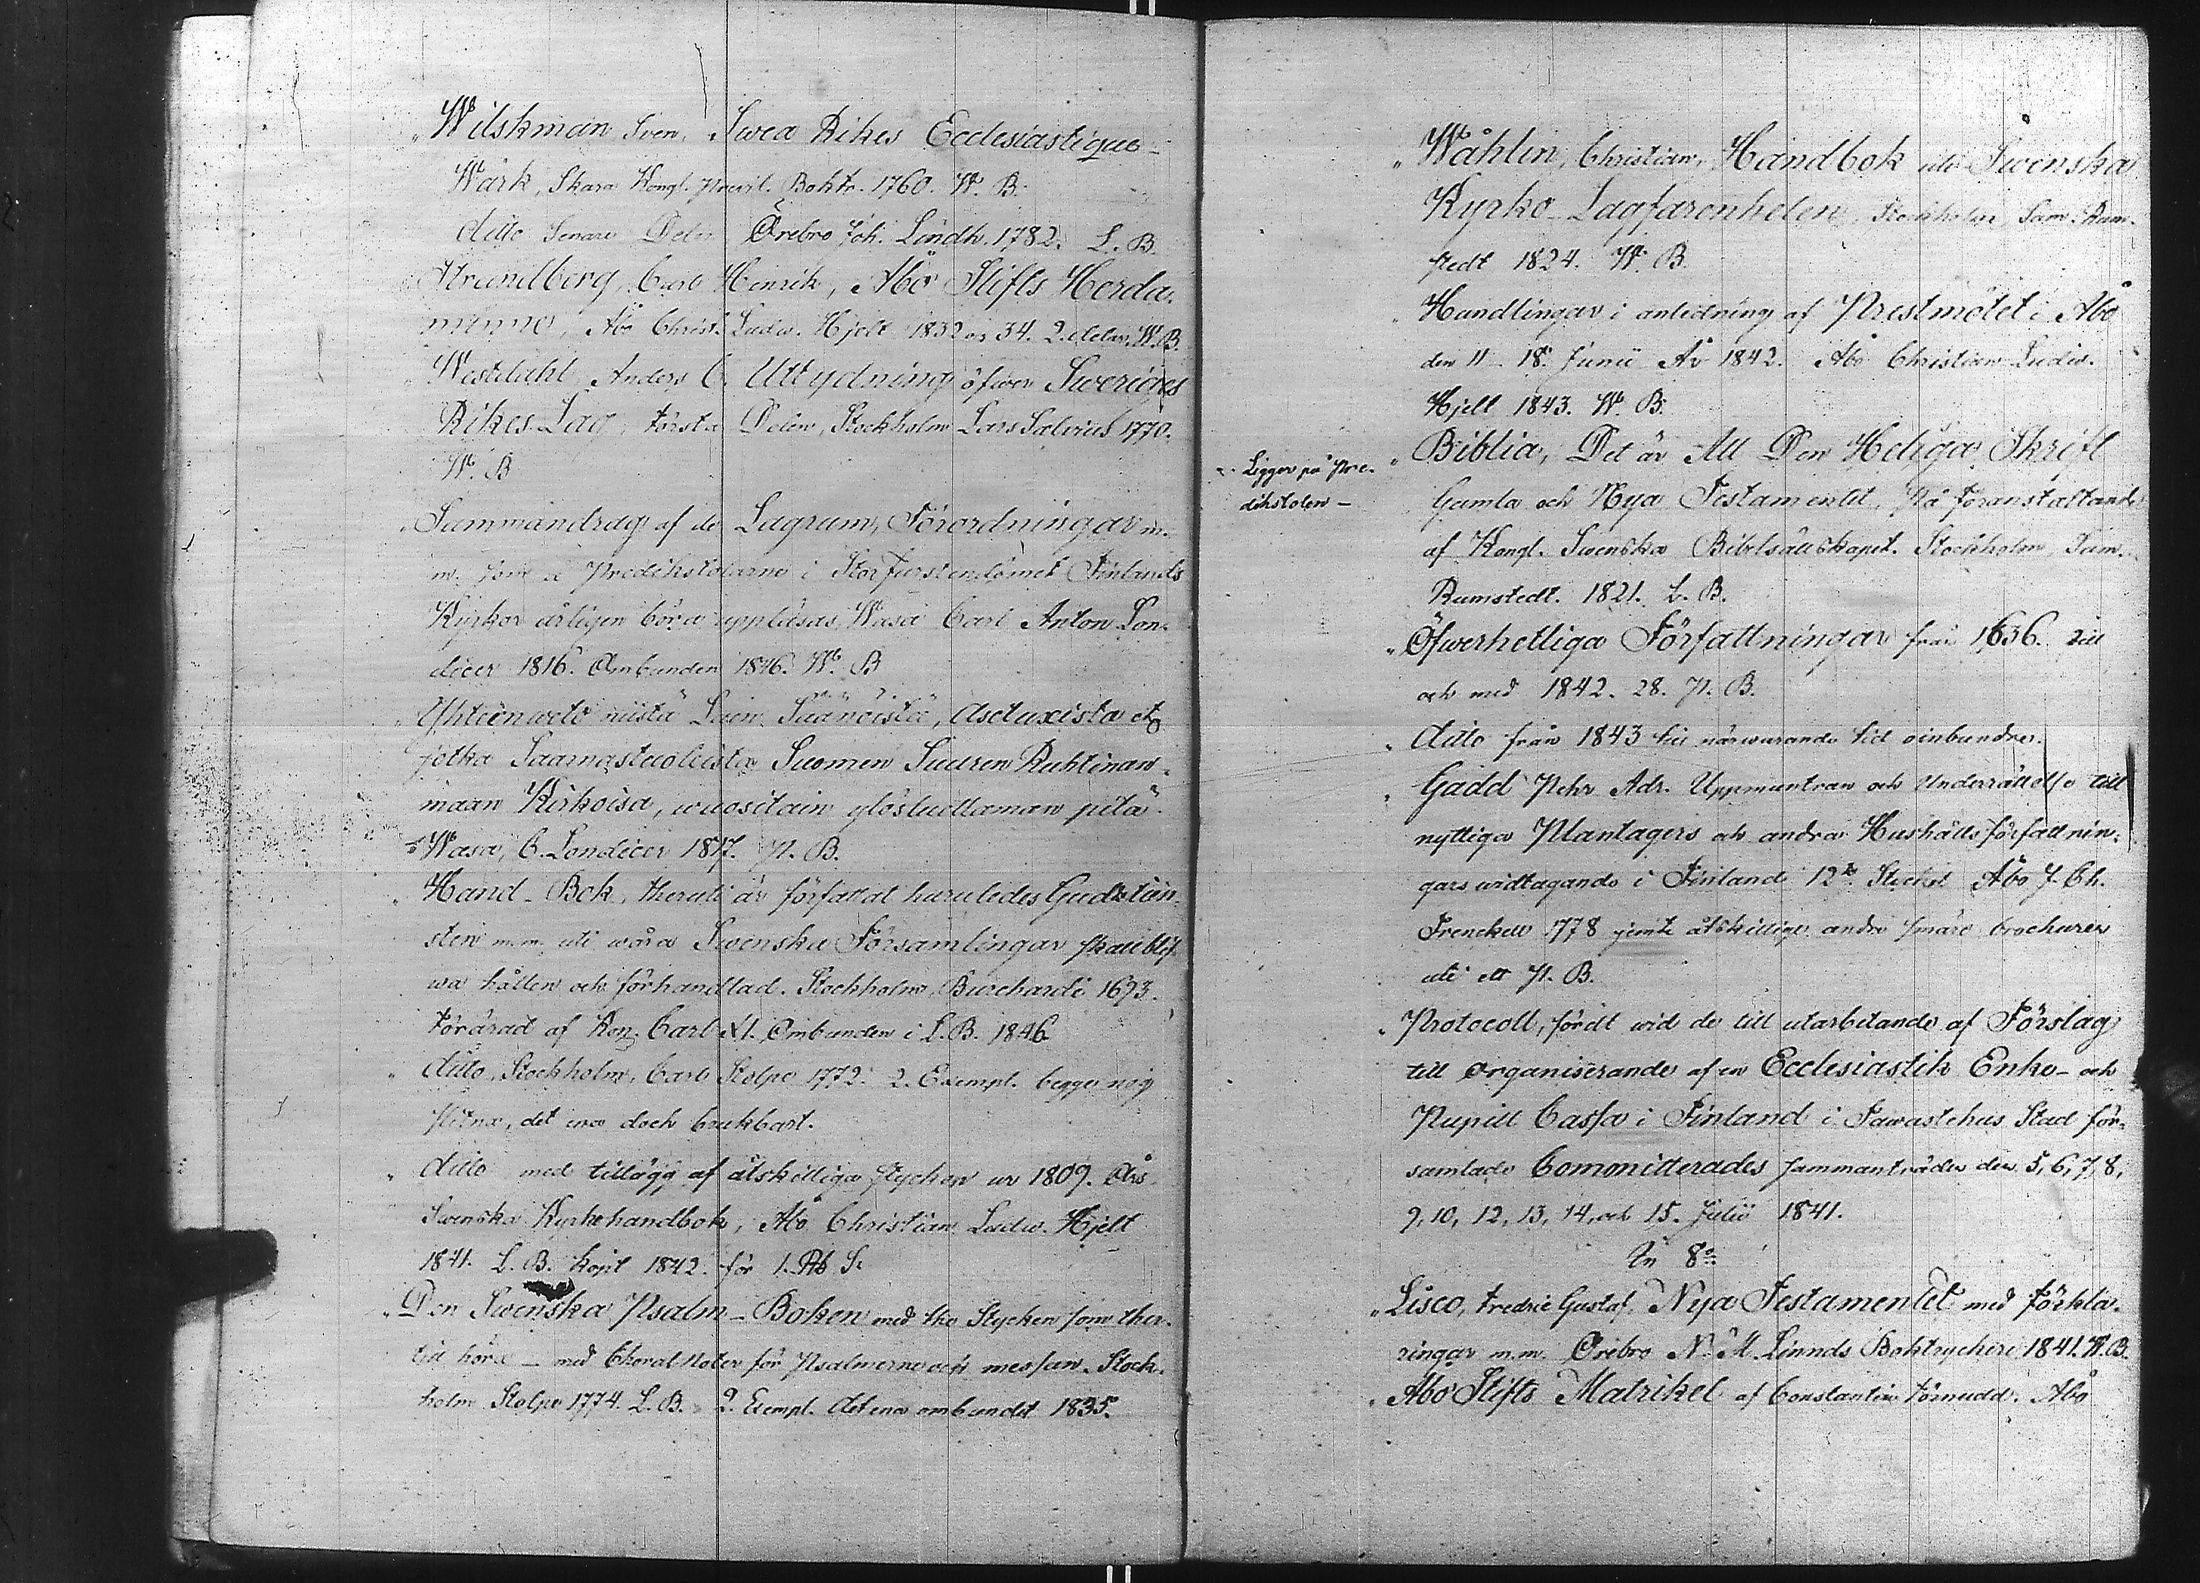 "Wilskman Sven, Swea Rikes Ecclesiastique-
Wärk, Skara Kongl. privil. Boktr. 1760. W. B.
ditto Senare Delen Örebro Joh. Lindh. 1782. L. B.
Strandberg, Carl Henrik, Åbo Stifts Herda-
minne, Åbo Christ. Ludv. Hjelt 1832 os 34. 2. delar. W. B.
"Westdahl Anders C. Uttydning öfwer Sweriges
Rikes Lag, första Delen, Stockholm Lars Salvius 1770.
W. B
"Sammandrag af de Lagrum, Förordningar m.
m. som å Predikstolarne i StorFurstendömet Finlands
Kyrkor årligen böra uppläsas, Wasa Carl Anton Lon-
dicer 1816. Ombunden 1846. W. B
"Yhteenweto niistä Lain Säänöistä, Asetuxista etc
jotka Saarnastuoleista Suomen Suuren Ruhtinan-
maan Kirkoisa, wuositain ylösluettaman pitä.
Wasa, C. Londicer 1817. P. B.
"Hand-Bok, theruti är författat huruledes Gudstien-
sten m.m. uti wåra Swenska Församlingar skall blif-
wa hållen och förhandlad. Stockholm, Burchardi 1693.
förärad af Kon. Carl XI. Ombunden i L. B. 1846
" ditto, Stockholm, Carl Stolpe 1772. 2. Exempl. begge nog
slitna, det ena dock brukbart.
" ditto med tillägg af åtskilliga stycken ur 1809. Års
Swenska Kyrkohandbok, Åbo Christian Ludv. Hjelt
1841. L. B. köpt 1842. för 1. Rb S.
"Den Swenska Psalm-Boken med the Stycken som ther-
til höra - med Choral Noter för Psalmerne och messan. Stock-
holm Stolpe 1774. L. B. 2. Exempl. det ena ombundet 1835.
"Wåhlin, Christian, Handbok uti Swenska
Kyrko-Lagfarenheten, Stockholm Sam. Rum-
stedt 1824. W. B.
"Handlingar i anledning af Prestmötet i Åbo
den 11-18. Junii År 1842. Åbo Christian Ludv.
Hjelt 1843. W. B.
Ligger på Pre-
dikstolen -
"Biblia, Det är All Den Heliga Skrift
Gamla och Nya Testamentet, På föranstaltande
af Kongl. Swenska Bibelsällskapet. Stockholm Sam.
Rumstedt. 1821. L. B.
"Öfwerhetliga Författningar från 1636. till
och med 1842. 28. P. B.
" ditto från 1843 till närwarande tid oinbundna.
" Gadd Pehr Adr. Uppmuntran och Underrättelse till
nyttiga Plantagers och andra Hushålls författnin-
gars widtagande i Finland 12te Stycket Åbo J. Ch.
Frenckell 1778 jemte åtskillige andre smärre brochurer
uti ett P. B.
"Protocoll, fördt wid de till utarbetande af Förslag
till organiserande af en Ecclesiastik Enke- och
Pupill Cassa i Finland i Tawastehus Stad för-
samlade Comonitterades sammanträden den 5, 6, 7, 8,
9, 10, 12, 13, 14, och 15. Julii 1841.
In 8o.
"Lisco, Fredric Gustaf. Nya Testamentet med förkla-
ringar m.m. Örebro N. M. Linnds Boktryckeri 1841. W. B.
"Åbo Stifts Matrikel af Constantin Törnudd. Åbo